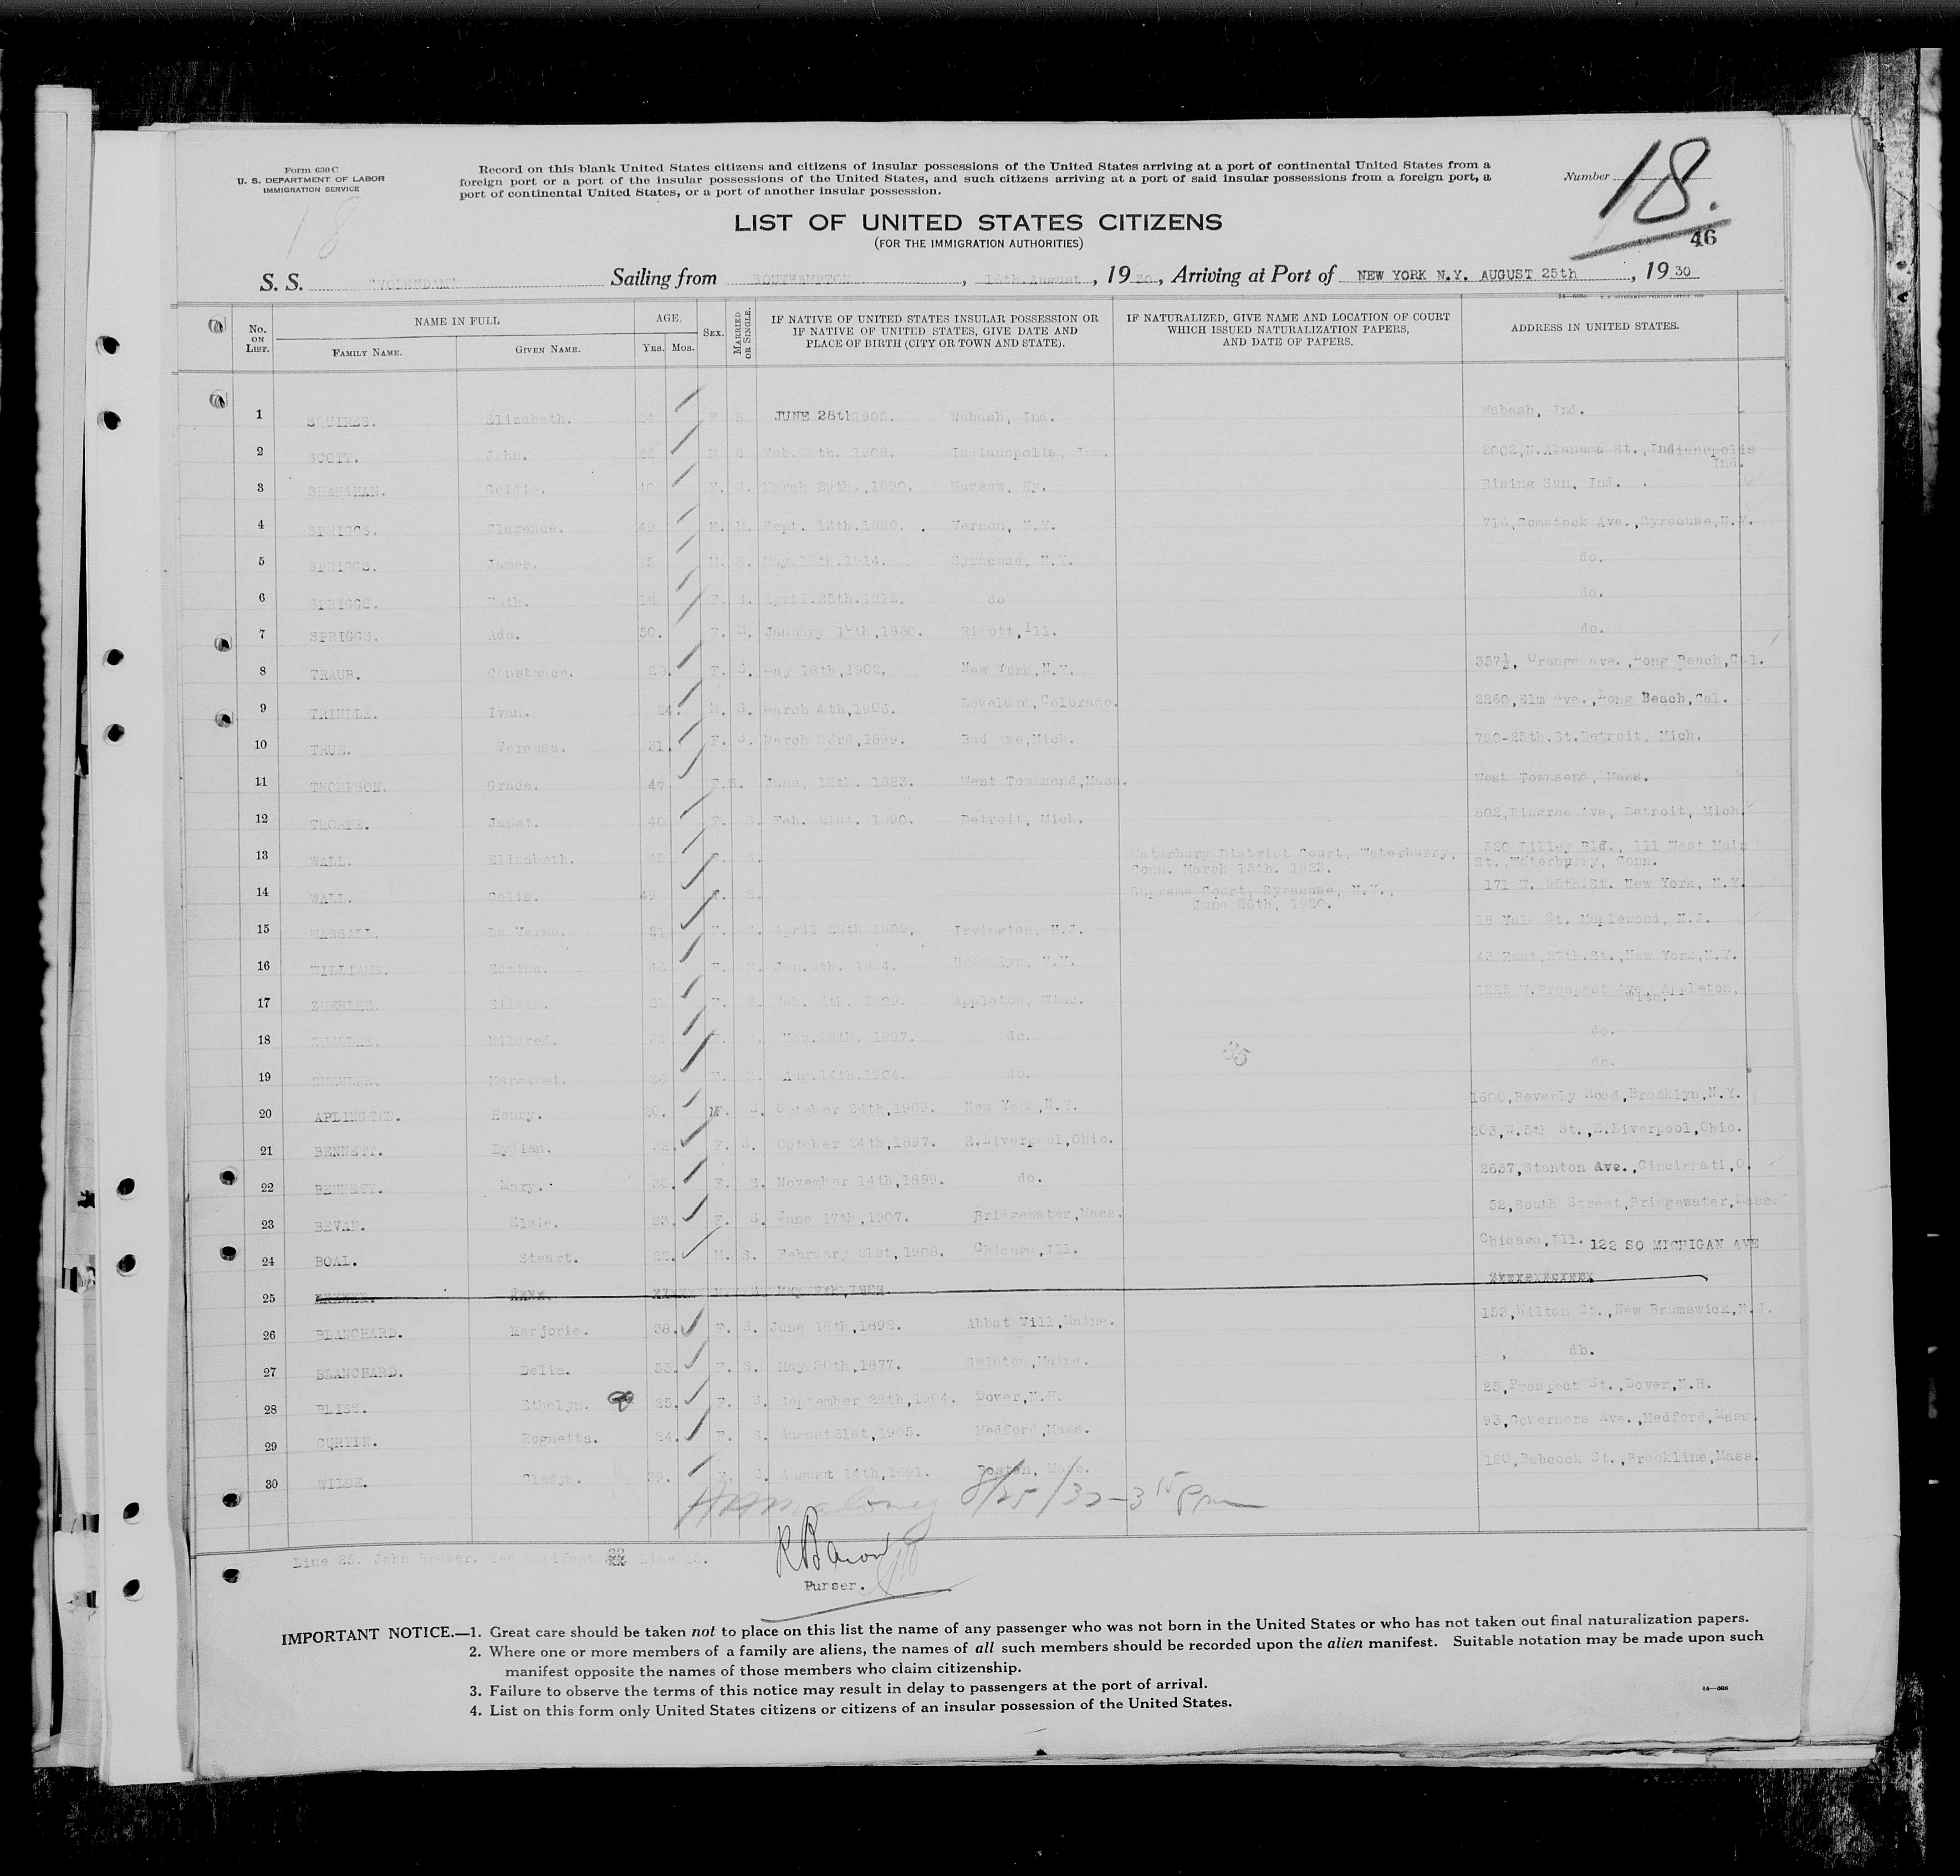 Form 630 C
U. S. DEPARTMENT OF LABOR
IMMIGRATION SERVICE
18
Record on this blank United States citizens and citizens of insular possessions of the United States arriving at a port of continental United States from a
foreign port or a port of the insular possessions of the United States, and such citizens arriving at a port of said insular possessions from a foreign port, a
port of continental United States, or a port of another insular possession.
Number 18.
46
LIST OF UNITED STATES CITIZENS
(FOR THE IMMIGRATION AUTHORITIES)
S. S. "VOLENDAM" Sailing from SOUTHAMPTON, 16th August, 1930, Arriving at Port of NEW YORK N.Y. AUGUST 25th, 1930
No. ON LIST. NAME IN FULL FAMILY NAME. GIVEN NAME. AGE. YRS. MOS. SEX. MARRIED OR SINGLE. IF NATIVE OF UNITED STATES INSULAR POSSESSION OR IF NATIVE OF UNITED STATES, GIVE DATE AND PLACE OF BIRTH (CITY OR TOWN AND STATE). IF NATURALIZED, GIVE NAME AND LOCATION OF COURT WHICH ISSUED NATURALIZATION PAPERS, AND DATE OF PAPERS. ADDRESS IN UNITED STATES.
1 SQUIRES. Elizabeth. 24 F S JUNE 28th 1905. Wabash, Ind. Wabash, Ind.
2 SCOTT. John. M S Feb. 1908. Indianopolis, Ind. 2002,N.Alanama St.,Indianopolis Ind.
3 SHANAHAN. Goldie. 40 F. S. March 29th.,1890. Warsaw, Ky. Rising Sun, Ind.
4 SPRIGGS. Clarence. 49 M. M. Sept. 12th.1880. Vernon, N.Y. 716,Comstock Ave.,Syracuse,N.Y.
5 SPRIGGS. James. 15 M. S. May.18th.1914. Syracuse, N.Y. do.
6 SPRIGGS. Ruth. 18 F. S. April.25th.1912. do do.
7 SPRIGGS. Ada. 50. F. M. January 10th,1880. Ridott,Ill. do.
8 TRAUB. Constance. 28. F. S. May 18th,1902. New York,N.Y. 357½, Orange Ave.,Long Beach,Cal.
9 TRINDLE. Ivan. 24. M. S. March 4th,1906. Loveland,Colorado. 2260,Elm Ave.,Long Beach,Cal.
10 TRUE. Teressa. 31. F. S. March 3rd,1899. Bad Axe,Mich. 790-25th.St.Detroit, Mich.
11 THOMPSON. Grace. 47. F. S. June, 12th. 1883. West Townsend,Mass. West Townsend, Mass.
12 THORPE. Janet. 40 F. S. Feb. 21st. 1890. Detroit, Mich. 602,Pingree Ave, Detroit, Mich.
13 WALL. Elizabeth. 45 F. S. Waterbury District Court, Waterburry, Conn. March 15th. 1923. 520 Lilley Bld., 111 West Main St.,Waterburry, Conn.
14 WALL. Celia. 49 F. S. Supreme Court, Syracuse, N.Y., June 26th, 1920. 171 W. 95th.St. New York, N.Y.
15 WASSALL. La Verne. 21 F. S. April 28th 1909. Irvington, N.J. 18 Yale St. Maplewood, N.J.
16 WILLIAMS. Edwina. F. S. Jan.9th. Brooklyn, N.Y. 43 East.27th.St.,New York,N.Y.
17 ZUEHLKE. Eileen. 21 F. S. Feb. 1909. Appleton, Wisc. 1225 W.Prospect Ave, Appleton, Wisc.
18 ZUEHLKE. Mildred. S. Nov.19th. 1897. do. do.
19 ZUEHLKE. Margaret. F. S. Aug.14th.1904. do. do.
35
20 APLINGTON. Henry. 20. M. S. October 24th,1909. New York,N.Y. 1600,Beverly Road,Brooklyn,N.Y.
21 BENNETT. Lydian. 32. F. S. October 24th,1897. E.Liverpool,Ohio. 203,W.5th St.,E.Liverpool,Ohio.
22 BENNETT. Mary. 30. F. S. November 14th,1899. do. 2637,Stanton Ave.,Cincinnati,O.
23 BEVAN. Elsie. 23. F. S. June 17th,1907. Bridgewater,Mass. 52,South Street,Bridgewater,Mass.
24 BOAL. Steart. 22. M. S. February 21st, 1908. Chicago,Ill. Chicago,Ill. 122 SO MICHIGAN AVE
25
26 BLANCHARD. Marjorie. 38. F. S. June 18th,1892. Abbat Vill,Maine. 153,Wilton St.,New Brunswick,N.J.
27 BLANCHARD. Delia. 53. F. S. May 30th,1877. Swinton,Maine. do.
28 BLISS. Ethelyn. 25. F. S. September 28th,1904. Dover,N.H. 25,Prospect St.,Dover,N.H.
29 CURTIN. Rognetta. 24. F. S. August 21st,1905. Medford,Mass. 93,Governors Ave.,Medford,Mass.
30 WILDE. Gladys. 39. F. S. August 14th,1891. Boston, Mass. 120,Babcock St.,Brookline,Mass.
8/25/30-3 15 Pm
Line 25. John Brewer. See Manifest 22 Line 15.
Purser.
IMPORTANT NOTICE.—1. Great care should be taken not to place on this list the name of any passenger who was not born in the United States or who has not taken out final naturalization papers.
2. Where one or more members of a family are aliens, the names of all such members should be recorded upon the alien manifest. Suitable notation may be made upon such
manifest opposite the names of those members who claim citizenship.
3. Failure to observe the terms of this notice may result in delay to passengers at the port of arrival.
4. List on this form only United States citizens or citizens of an insular possession of the United States.